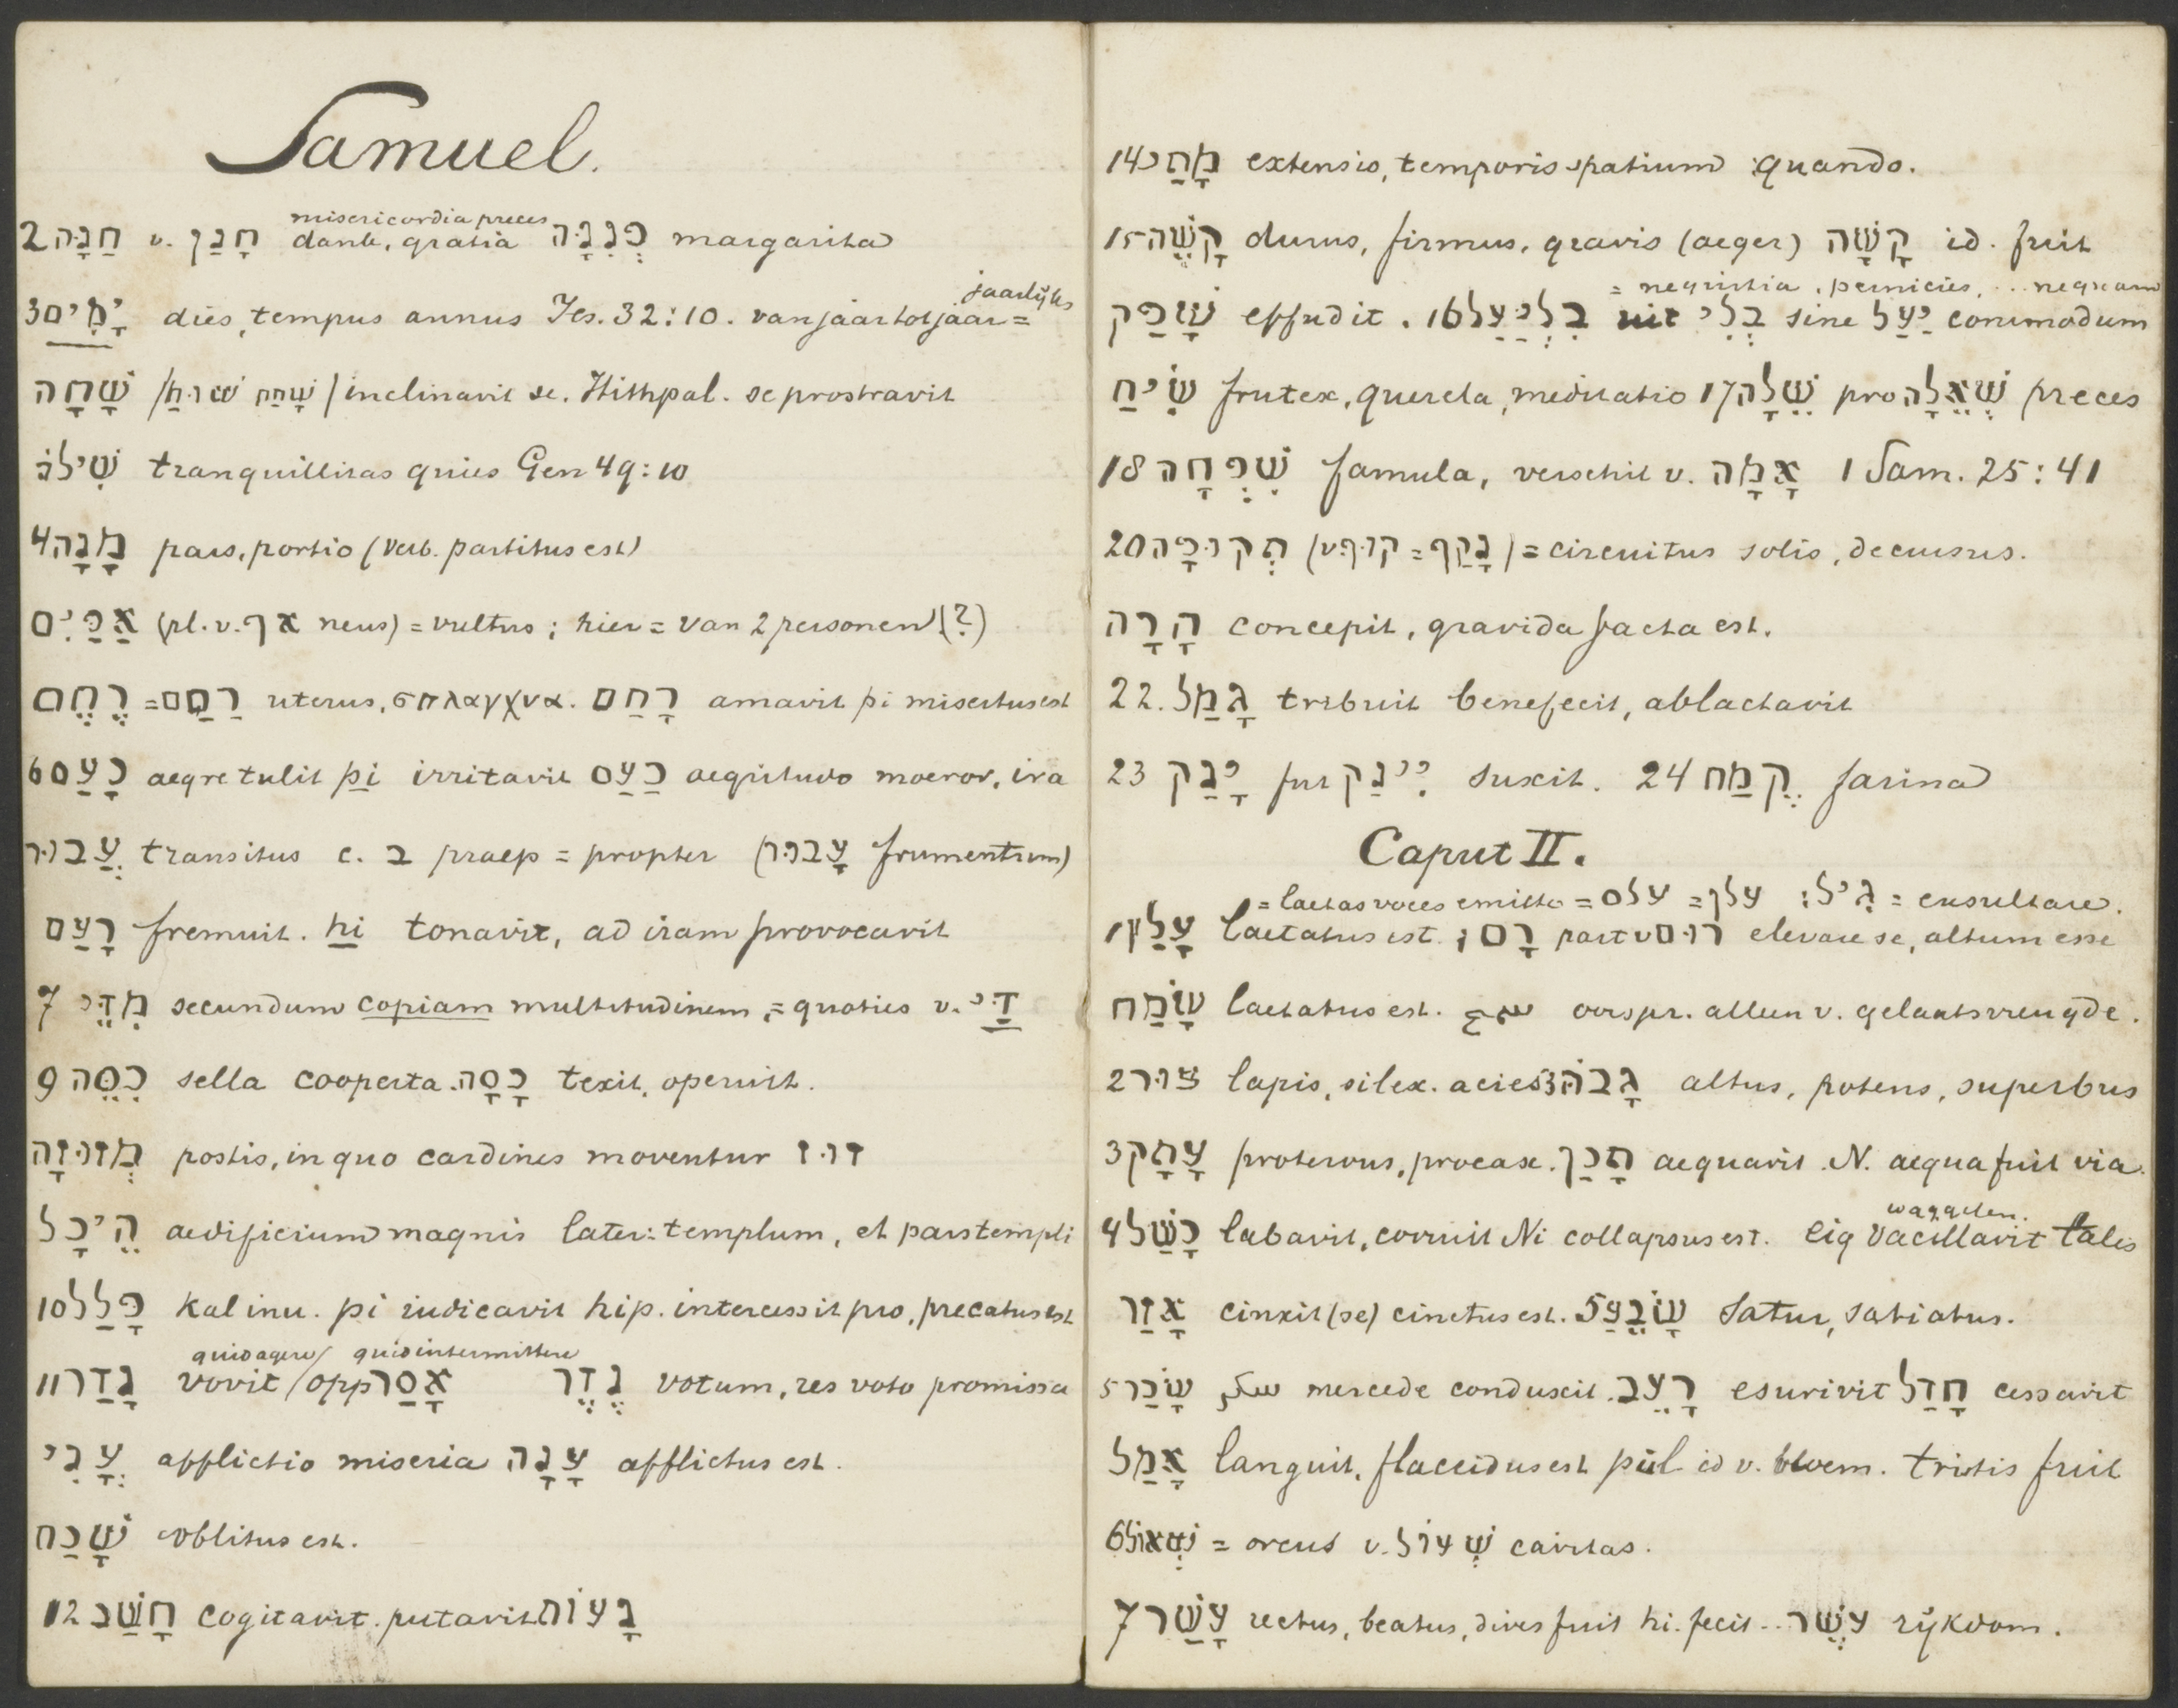 Samuel.
misericordia preces
2 חַנָּה v. חָנַן dante, gratia פְּנִנָּה margarita
jaarlijks
3 יָמִים dies, tempus annus Jes. 32:10. van jaar tot jaar =
שָׁחָה / שָׁחַח שׁוּחַ / inclinavit se. Hithpal. se prostravit
שִׁילֹה tranquillitas quies Gen 49:10
4 מָנָה pars, portio (verb. partitus est)
אַפַּיִם (pl. v. אף neus) = vultus; hier = van 2 personen (?)
רֶחֶם = רַחַם uterus, σπλαγχνα. רָחַם amavit pi misertus est
6 כָּעַס aegre tulit pi irritavit כַּעַס aegritudo moeror, ira
עֲבוּר transitus c. ב praep = propter (עָבוּר frumentum)
רָעַם fremuit. hi tonavit, ad iram provocavit
7 מִדֵּי secundum copiam multitudinem, = quoties v. דַּי
9 כִּסֵּה sella cooperta. כָּסָה texit, operuit.
מְזוּזָה postis, in quo cardines moventur זוּז
הֵיכָל aedificium magnis later: templum, et pars templi
10 פָּלַל Kal inu. pi iudicavit hip. intercessit pro, precatus est
quid agere / quid intermittere
11 נָדַר vovit / opp אָסַר נֶדֶר votum, res voto promissa
עֳנִי afflictio miseria עָנָה afflictus est.
שָׁכַח oblitus est.
12 חָשַׁב cogitavit. putavit בָּעוֹת
14 מָתַי extensio, temporis spatium quando.
15 קָשֶׁה durus, firmus, gravis (aeger) קָשָׁה id. fuit
= nequitia, pernicies, .. nequam
שָׁפַק effudit. 16 בְּלִיַּעַל uit בְּלִי sine יַעַל commodum
שִׂיחַ frutex, querela, meditatio 17 שֵׁלָה pro שְׁאֵלָה preces
18 שִׁפְחָה famula, verschil v. אָמָה 1 Sam. 25:41
20 תְּקוּפָה (v קוּף = נָקַף) = circuitus solis, decursus.
הָרָה concepit, gravida facta est.
22. גָּמַל tribuit benefecit, ablactavit
23 יָנַק fut יִינַק suxit. 24 קֶמַח farina
Caput II.
= laetas voces emitto = עלס = עלז גִּיל: = exsultare.
1 עָלַץ laetatus est. רָם; part v רוּם elevare se, altum esse
שָׂמַח laetatus est. سمح oorspr. alleen v. gelaatsvreugde.
2 צוּר lapis, silex. acies 3 גָּבֹהַּ altus, potens, superbus
3 עָתָק protervus, procax. תָּכַן aequavit. N. aequa fuit via.
waggelen.
4 כָּשַׁל labavit, corruit Ni collapsus est. eig vacillavit talis
אָזַר cinxit (se) cinctus est. 5 שָׂבֵעַ satur, satiatus.
5 שָׂכַר شكر mercede conduxit. רָעֵב esurivit חָדַל cessavit
אָמַל languit, flaccidus est pul id v. bloem. tristis fuit
6 שְׁאוֹל = orcus v. שְׁעוֹל cavitas.
7 עָשַׁר rectus, beatus, dives fuit hi. fecit.. עֹשֶׁר rijkdom.